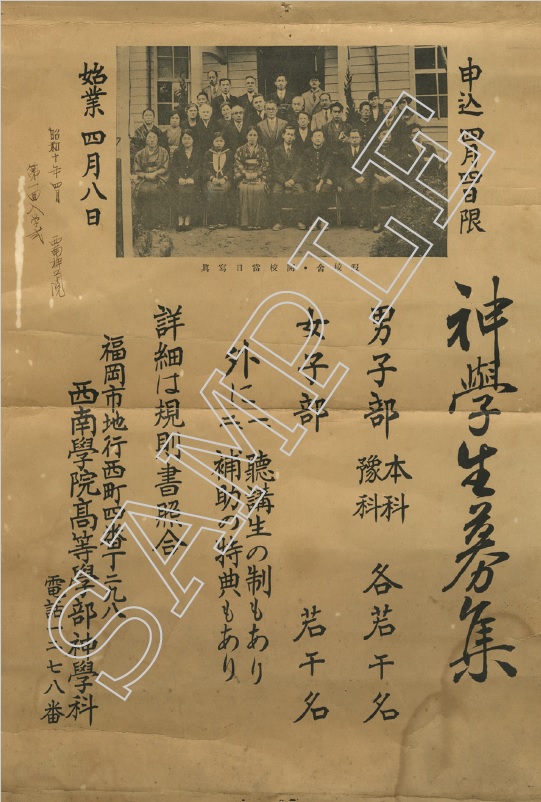 申込 四月四日限
始業 四月八日
假校舎・開校當日寫眞
昭和十年四月
第一回入学式
西南神学院
神學生募集
男子部 本科 豫科 各若干名
女子部 若干名
外に 一 聽講生の制もあり
一 補助の特典もあり
詳細は規則書照合
福岡市地行西町四番丁二九八
西南學院高等學部神學科
電話一二七八番
SAMPLE